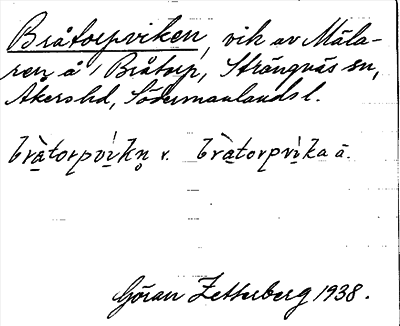 Bråtorpviken, vik av Mäla-
ren å Bråtorp, Strängnäs sn,
Åkers hd, Södermanlands l.
brå̀torpvìkn̥ v. brå̀torpvìka ä.
Göran Zetterberg 1938.